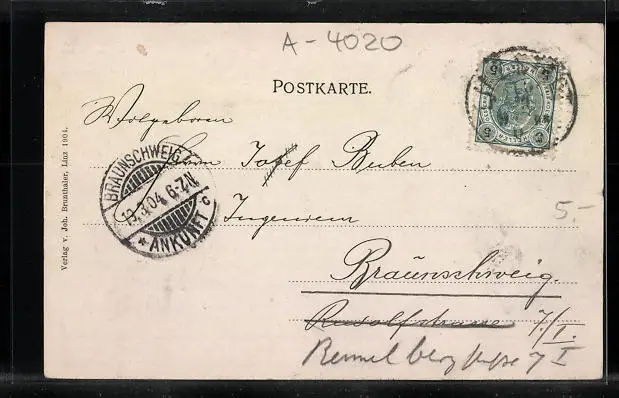 A-4020
POSTKARTE.
5 5
5 5
Wolgeboren
Herrn Josef Buben
Ingenieur
Braunschweig.
Rudolfstrasse 7/I.
Rummelbergstrasse 7 I
5.-
BRAUNSCHWEIG
13. 04. 6-7N
* ANKUNFT c
Verlag v. Joh. Brunthaler, Linz 1901.